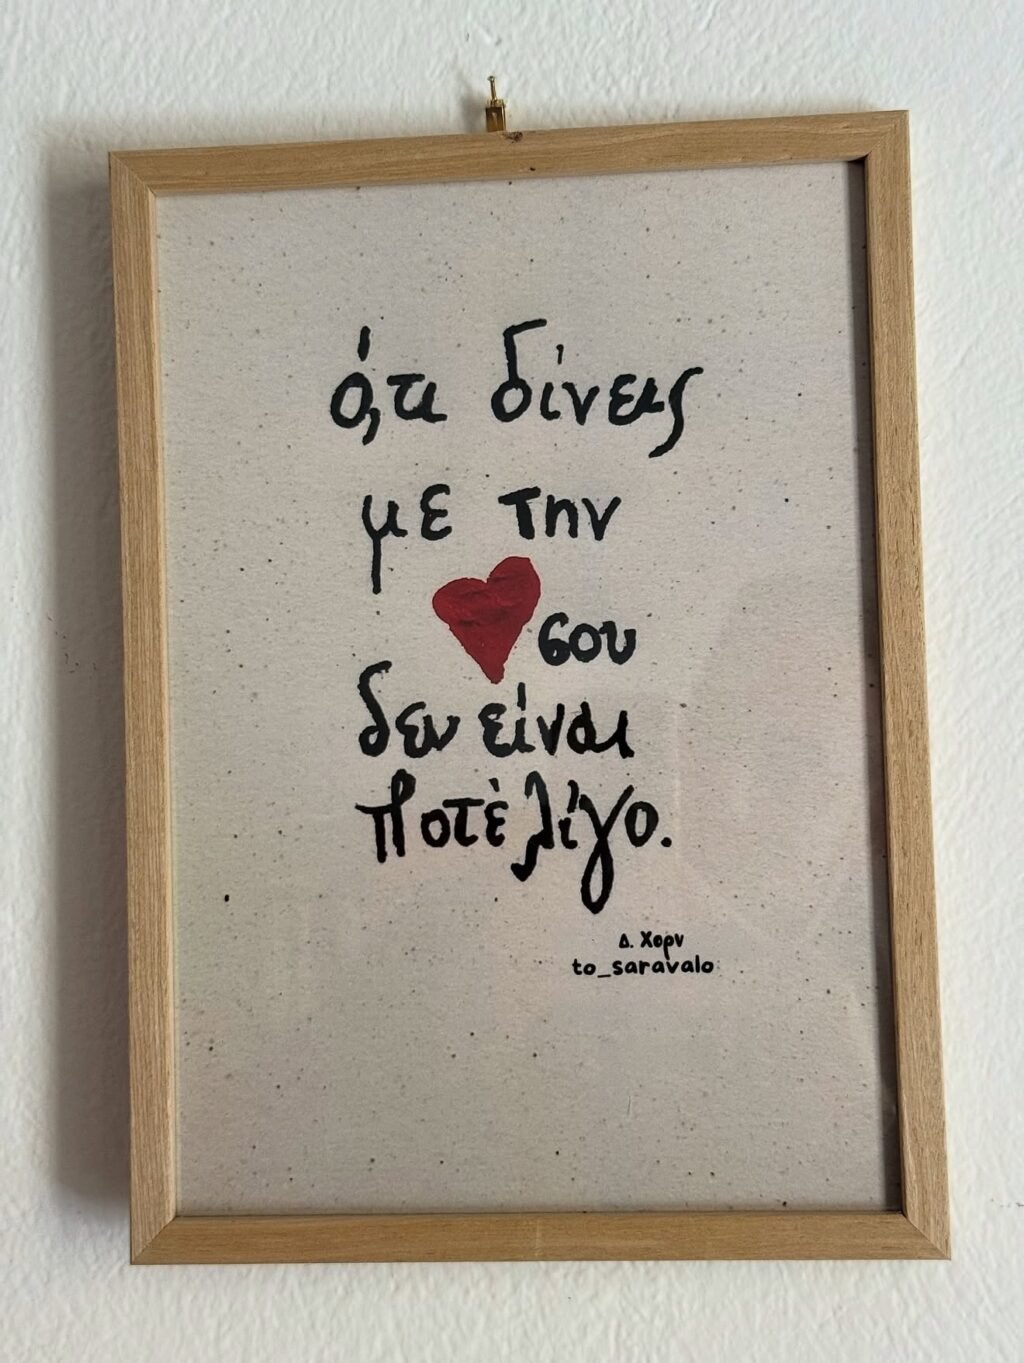 ό,τι δίνεις
με την
σου
δεν είναι
ποτὲ λίγο.
Δ. Χορν
to_saravalo